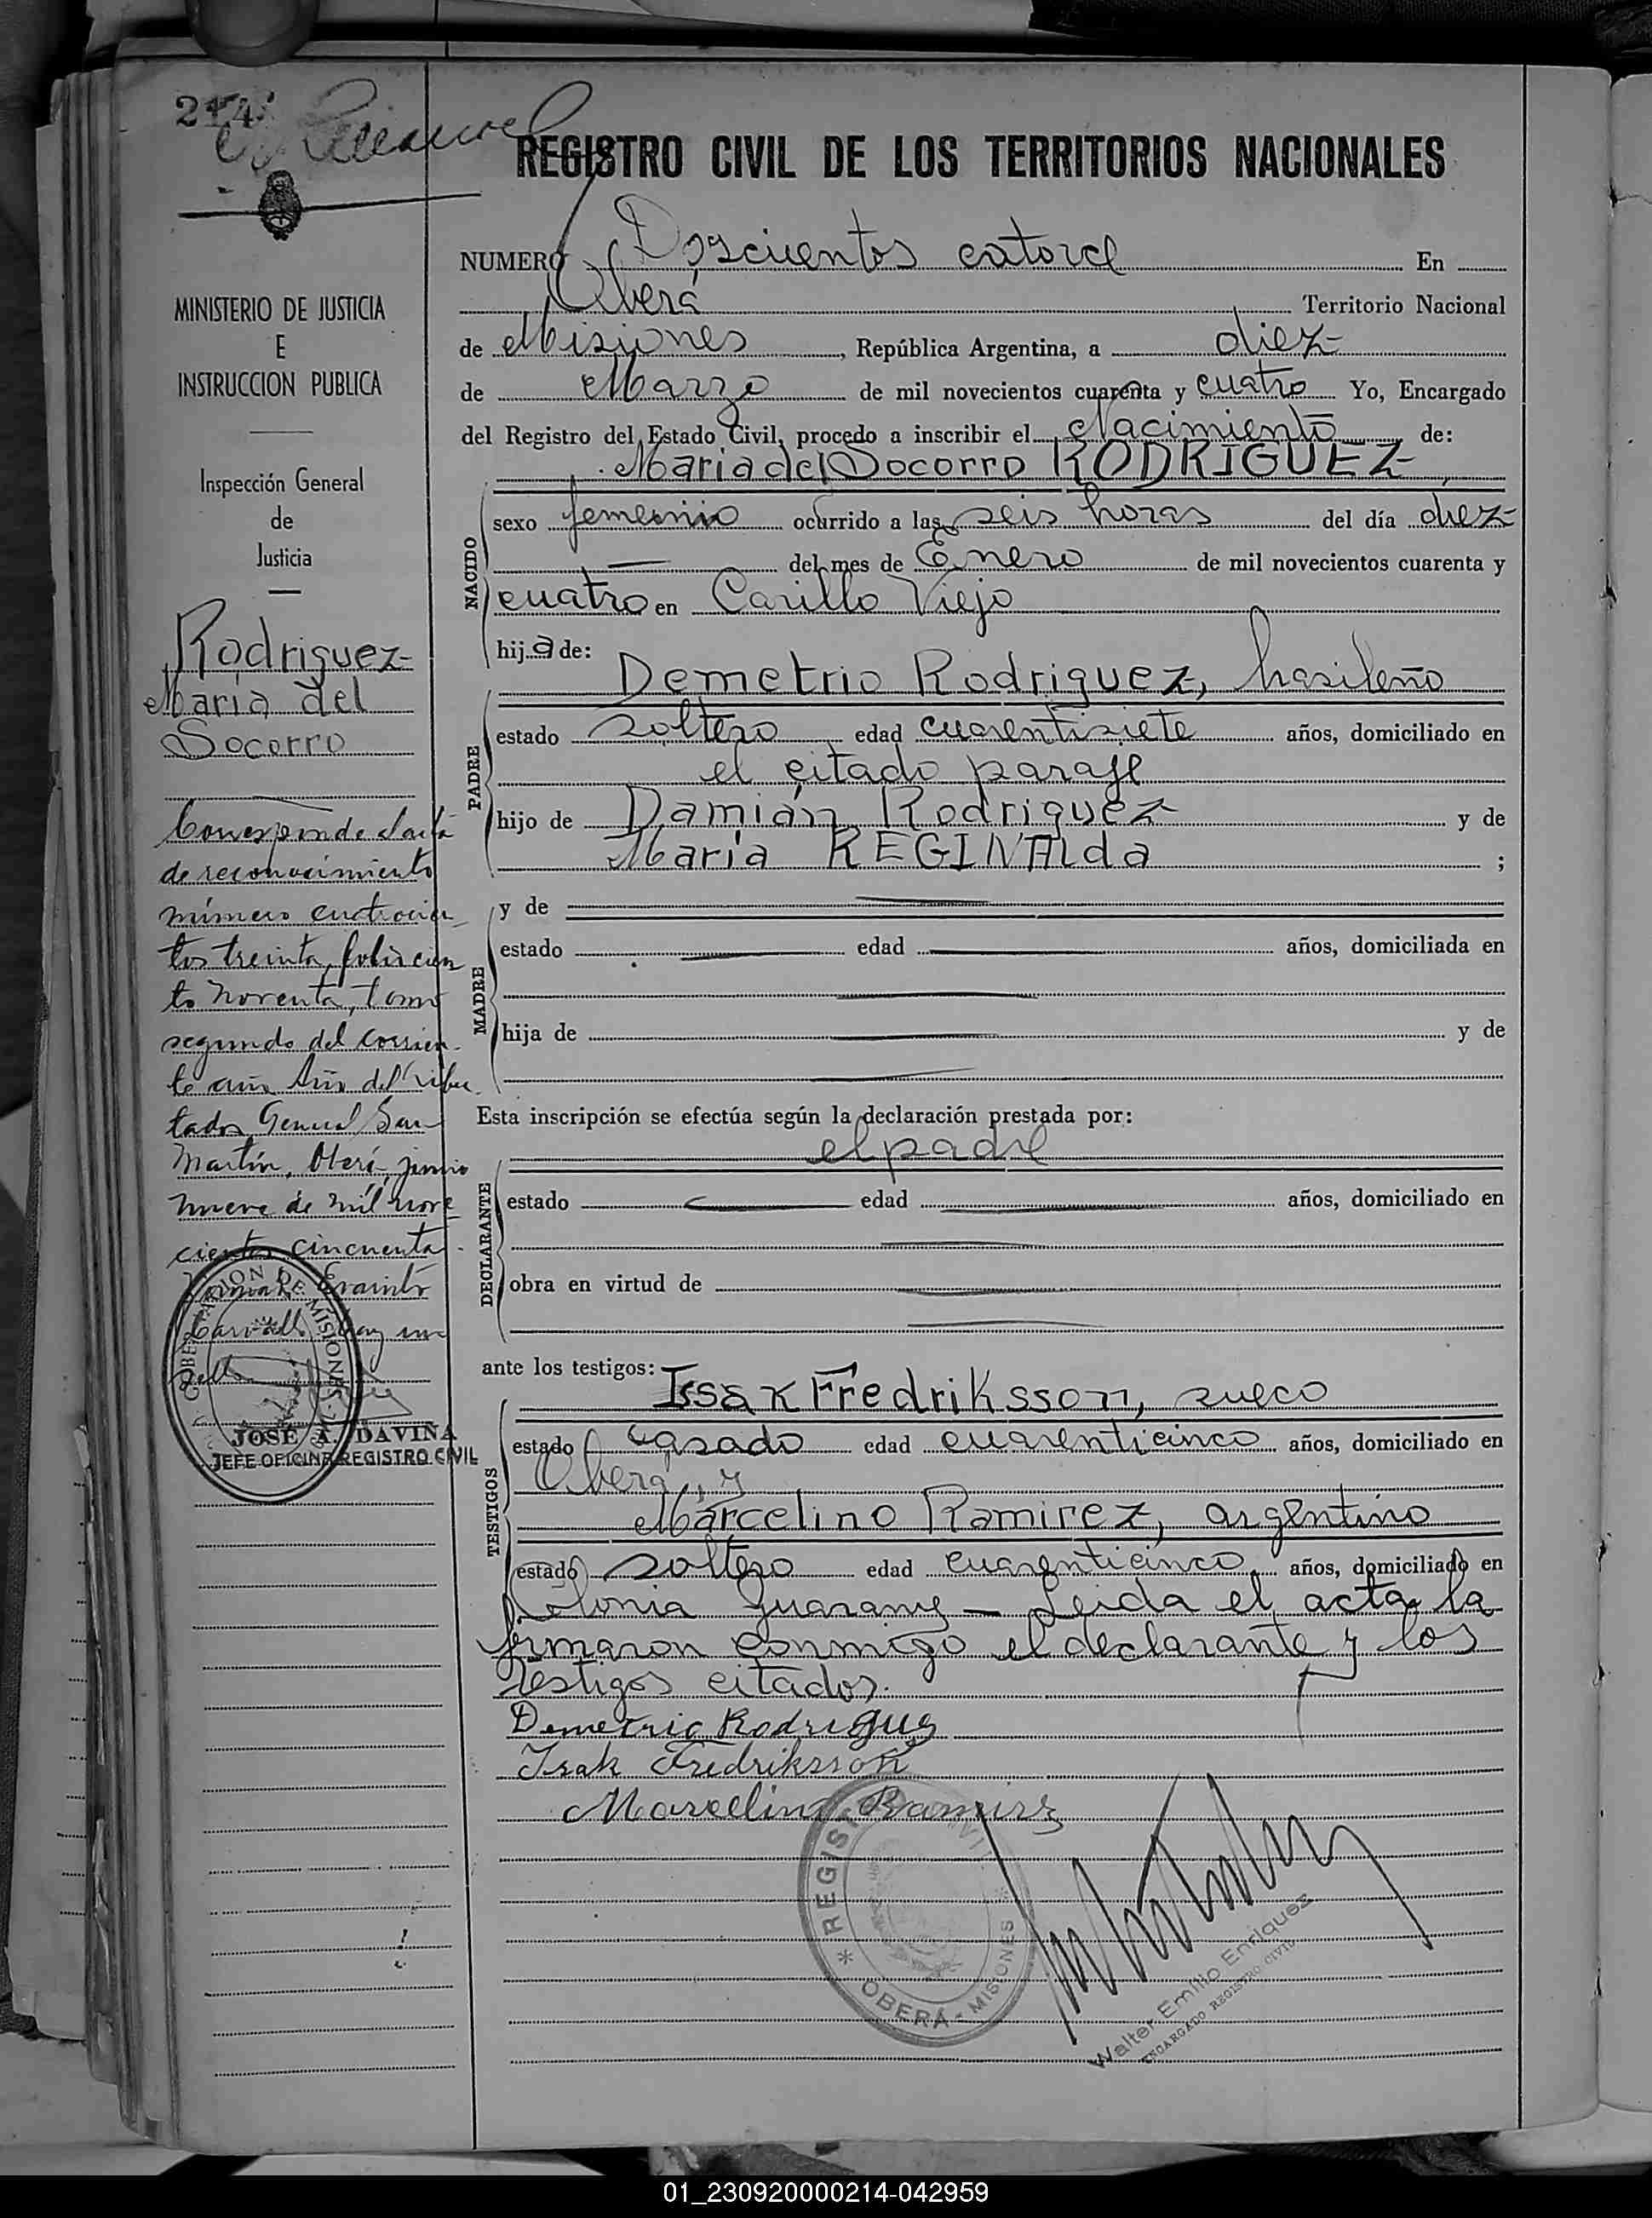 214
REGISTRO CIVIL DE LOS TERRITORIOS NACIONALES
NUMERO Doscientos catorce En
Oberá Territorio Nacional
de Misiones, República Argentina, a diez
de Marzo de mil novecientos cuarenta y cuatro Yo, Encargado
del Registro del Estado Civil, procedo a inscribir el Nacimiento de:
Maria del Socorro RODRIGUEZ
NACIDO
sexo femenino ocurrido a las seis horas del día diez
— del mes de Enero de mil novecientos cuarenta y
cuatro en Carillo Viejo
hija de:
PADRE
Demetrio Rodriguez, brasileño
estado soltero edad cuarentisiete años, domiciliado en
el citado paraje
hijo de Damián Rodriguez y de
María REGINAlda ;
MADRE
y de
estado edad años, domiciliada en
hija de y de
Esta inscripción se efectúa según la declaración prestada por:
el padre
DECLARANTE
estado edad años, domiciliado en
obra en virtud de
ante los testigos:
TESTIGOS
Issak Fredriksson, sueco
estado casado edad cuarenticinco años, domiciliado en
Oberá, y
Marcelino Ramirez, argentino
estado soltero edad cuarenticinco años, domiciliado en
Colonia Guarany — Leida el acta la
firmaron conmigo el declarante y los
testigos citados.
Demetrio Rodrigues
Isak Fredriksson
Marcelino Ramirez
REGISTRO CIVIL
OBERÁ - MISIONES
Walter Emilio Enriquez
ENCARGADO REGISTRO CIVIL
MINISTERIO DE JUSTICIA
E
INSTRUCCION PUBLICA
Inspección General
de
Justicia
Rodriguez
María del
Socorro
Corresponde acta
de reconocimiento
número cuatrocien
tos treinta, folio cien
to noventa, tomo
segundo del corrien-
te año Año del Liber
tador General San
Martín, Oberá, junio
nueve de mil nove
cientos cincuenta.
GOBERNACION DE MISIONES
JOSÉ A. DAVIÑA
JEFE OFICINA REGISTRO CIVIL
01_230920000214-042959